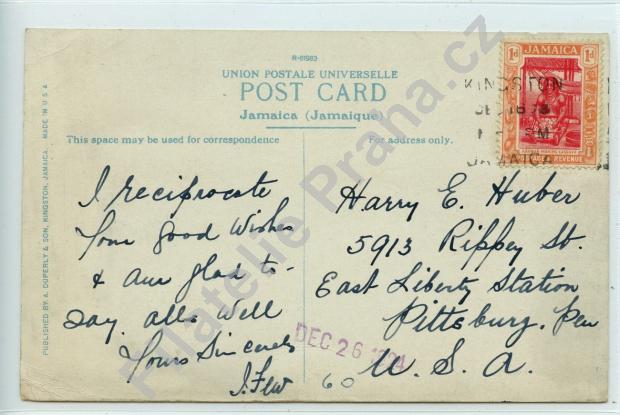 R-81983
UNION POSTALE UNIVERSELLE
POST CARD
Jamaica (Jamaique)
This space may be used for correspondence
For address only.
PUBLISHED BY A. DUPERLY & SON, KINGSTON, JAMAICA. MADE IN U S A
1d JAMAICA 1d
POSTAGE & REVENUE
KINGSTON
JAMAICA
I reciprocate
Your Good Wishes
& am glad to
say alls Well
Yours Sincerely
Harry E. Huber
5913 Rippey St.
East Liberty Station
Pittsburg, Pen
U. S. A.
DEC 26
60
Filatelie Praha.cz